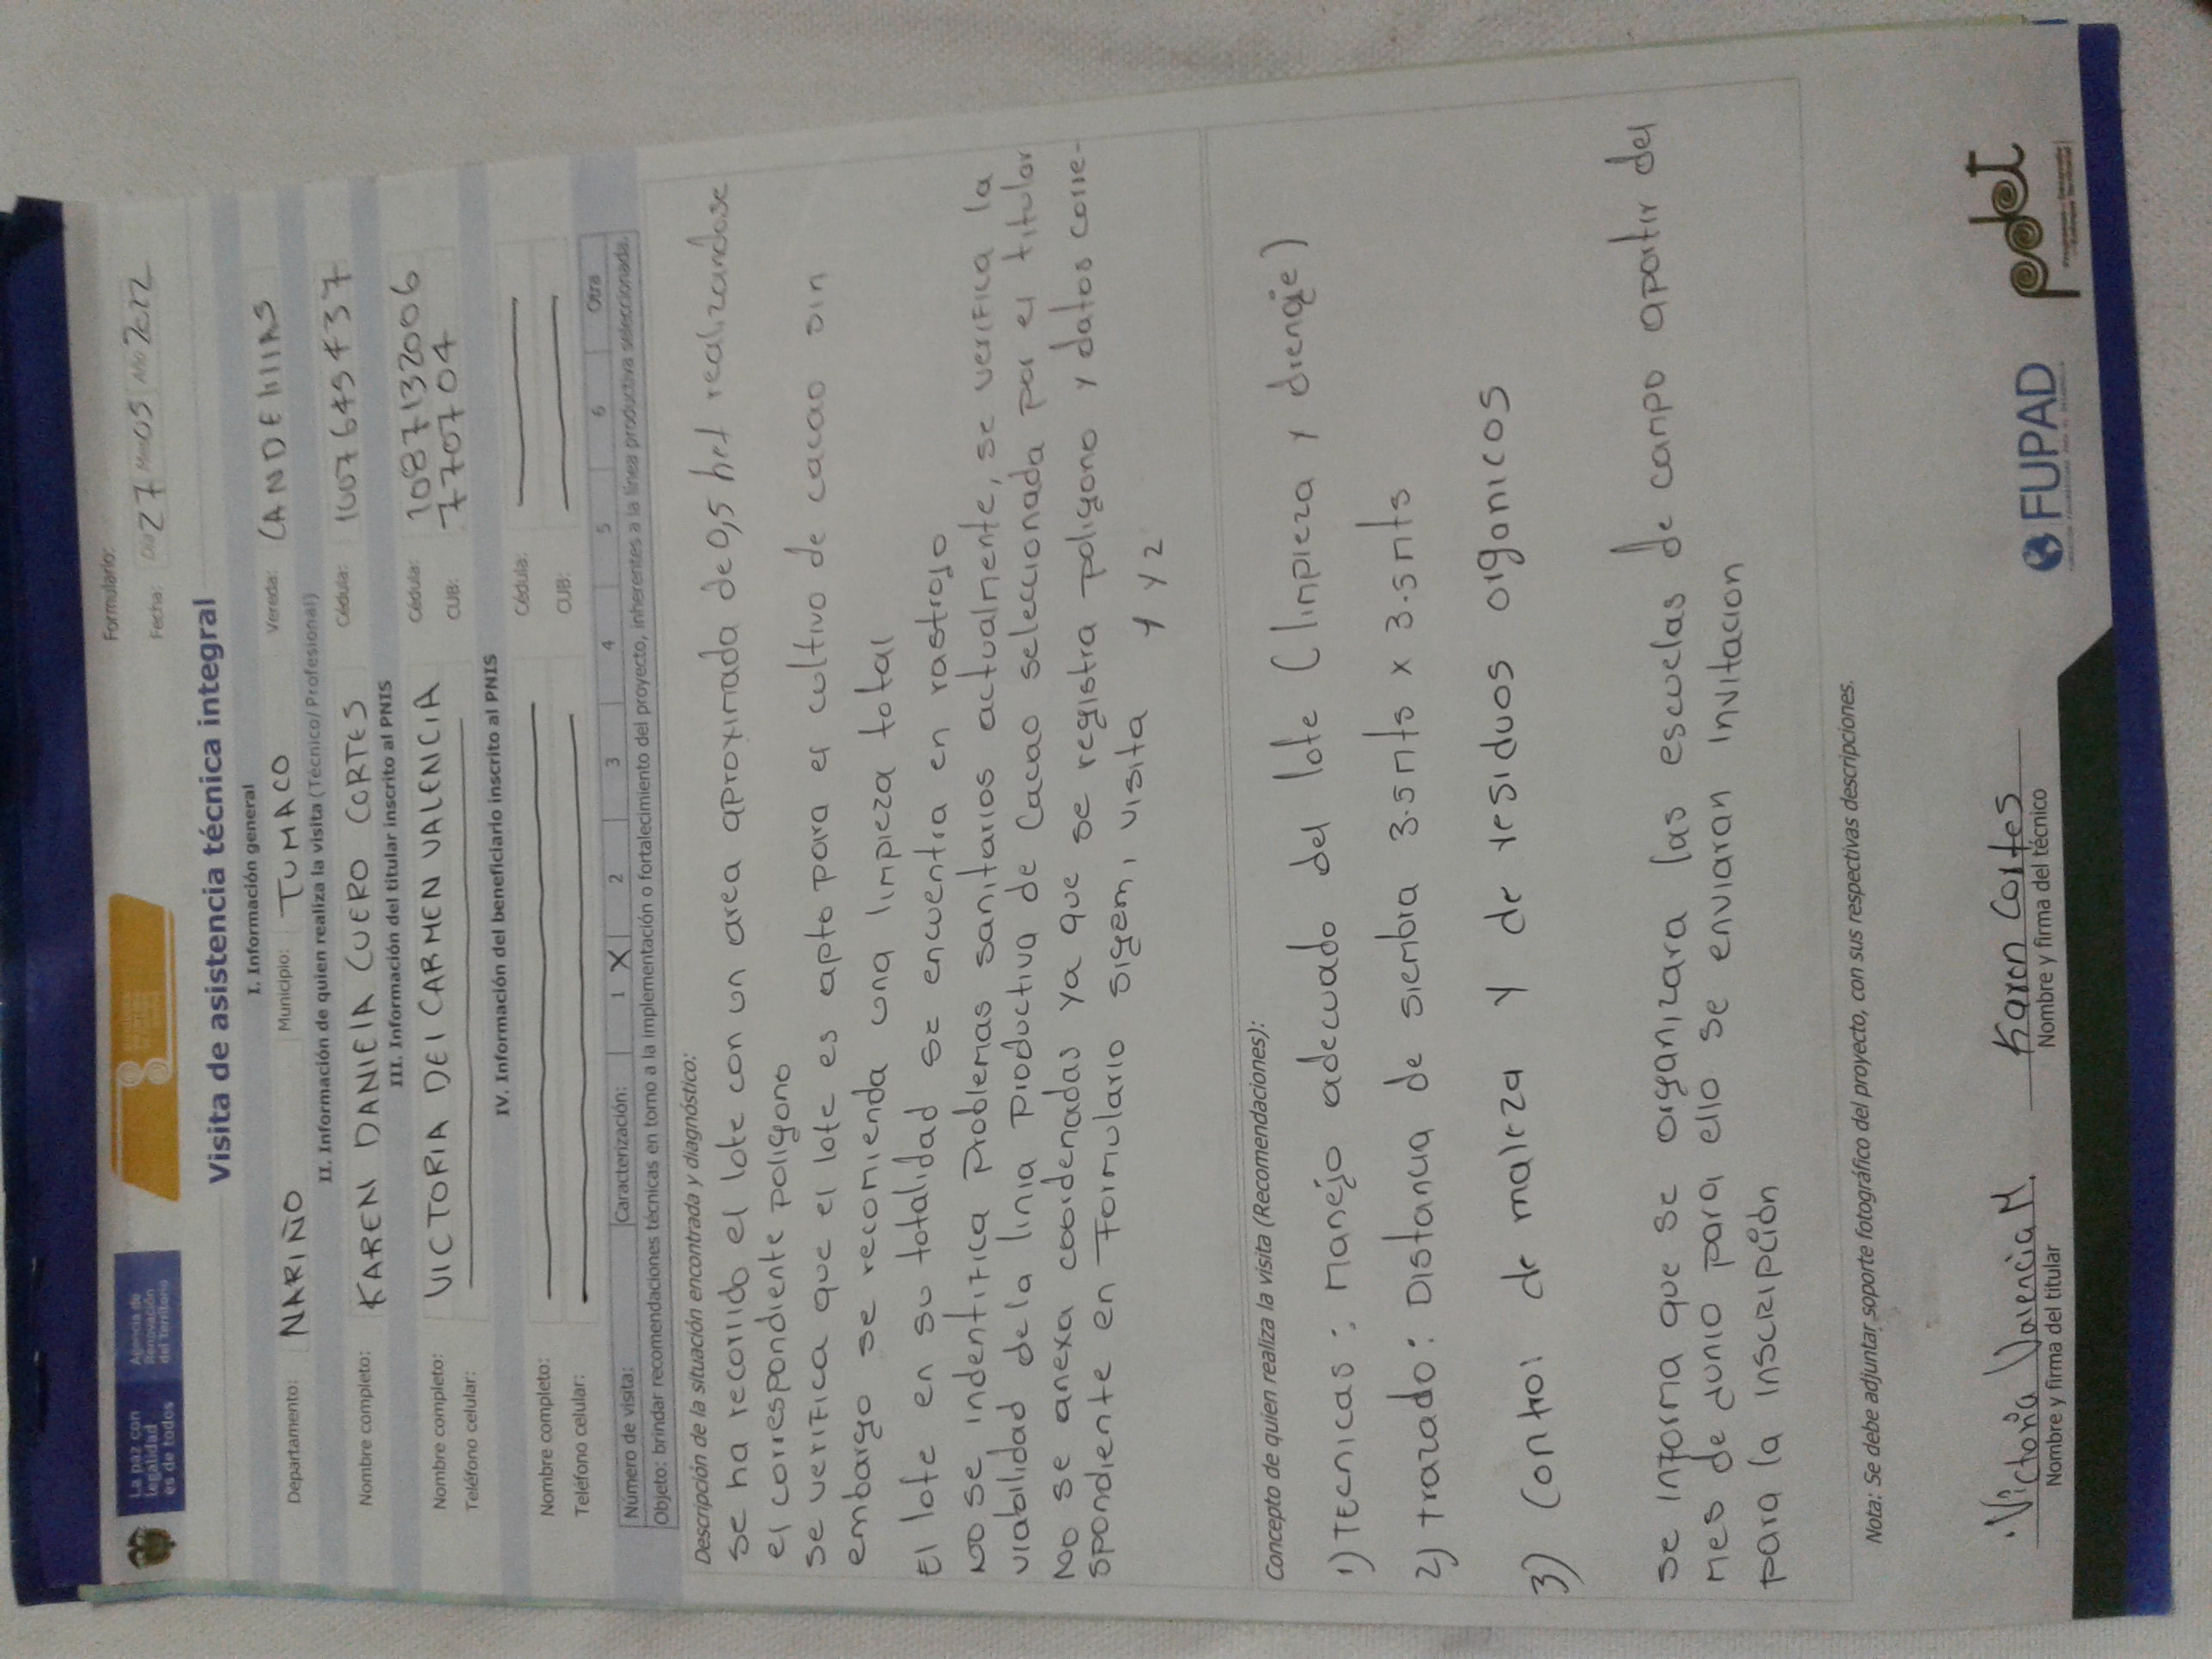 La paz con
legalidad
es de todos
Agencia de
Renovación
del Territorio
Formulario:
Fecha: Día 27 Mes 05 Año 2022
Visita de asistencia técnica integral
I. Información general
Departamento: NARIÑO Municipio: TUMACO Vereda: CANDEllIAS
II. Información de quien realiza la visita (Técnico/Profesional)
Nombre completo: KAREN DANIElA CUERO CORTES Cédula: 1007645437
III. Información del titular inscrito al PNIS
Nombre completo: VICTORIA DEl CARMEN VALENCIA Cédula: 1087132006
Teléfono celular: CUB: 770704
IV. Información del beneficiario inscrito al PNIS
Nombre completo: Cédula:
Teléfono celular: CUB:
Número de visita: Caracterización: 1 X 2 3 4 5 6 Otra
Objeto: brindar recomendaciones técnicas en torno a la implementación o fortalecimiento del proyecto, inherentes a la línea productiva seleccionada.
Descripción de la situación encontrada y diagnóstico:
se ha recorrido el lote con un area aproximada de 0,5 het realizandose
el correspondiente poligono
se verifica que el lote es apto para el cultivo de cacao sin
embargo se recomienda una limpieza total
El lote en su totalidad se encuentra en rastrojo
No se indentifica problemas sanitarios actualmente, se verifica la
viabilidad de la linia productiva de cacao seleccionada por el titular
No se anexa coordenadas ya que se registra poligono y datos corre-
spondiente en formulario sigem, visita 1 y 2
Concepto de quien realiza la visita (Recomendaciones):
1) Tecnicas: manejo adecuado del lote (limpieza y drenaje)
2) trazado: Distancia de siembra 3.5 mts x 3.5 mts
3) Control de maleza y de residuos organicos
se informa que se organizara las escuelas de campo apartir del
mes de Junio para ello se enviaran invitacion
para la inscripción
Nota: Se debe adjuntar soporte fotográfico del proyecto, con sus respectivas descripciones.
Victoria Valencia M.
Nombre y firma del titular
Karen Cortes
Nombre y firma del técnico
FUPAD
pdet